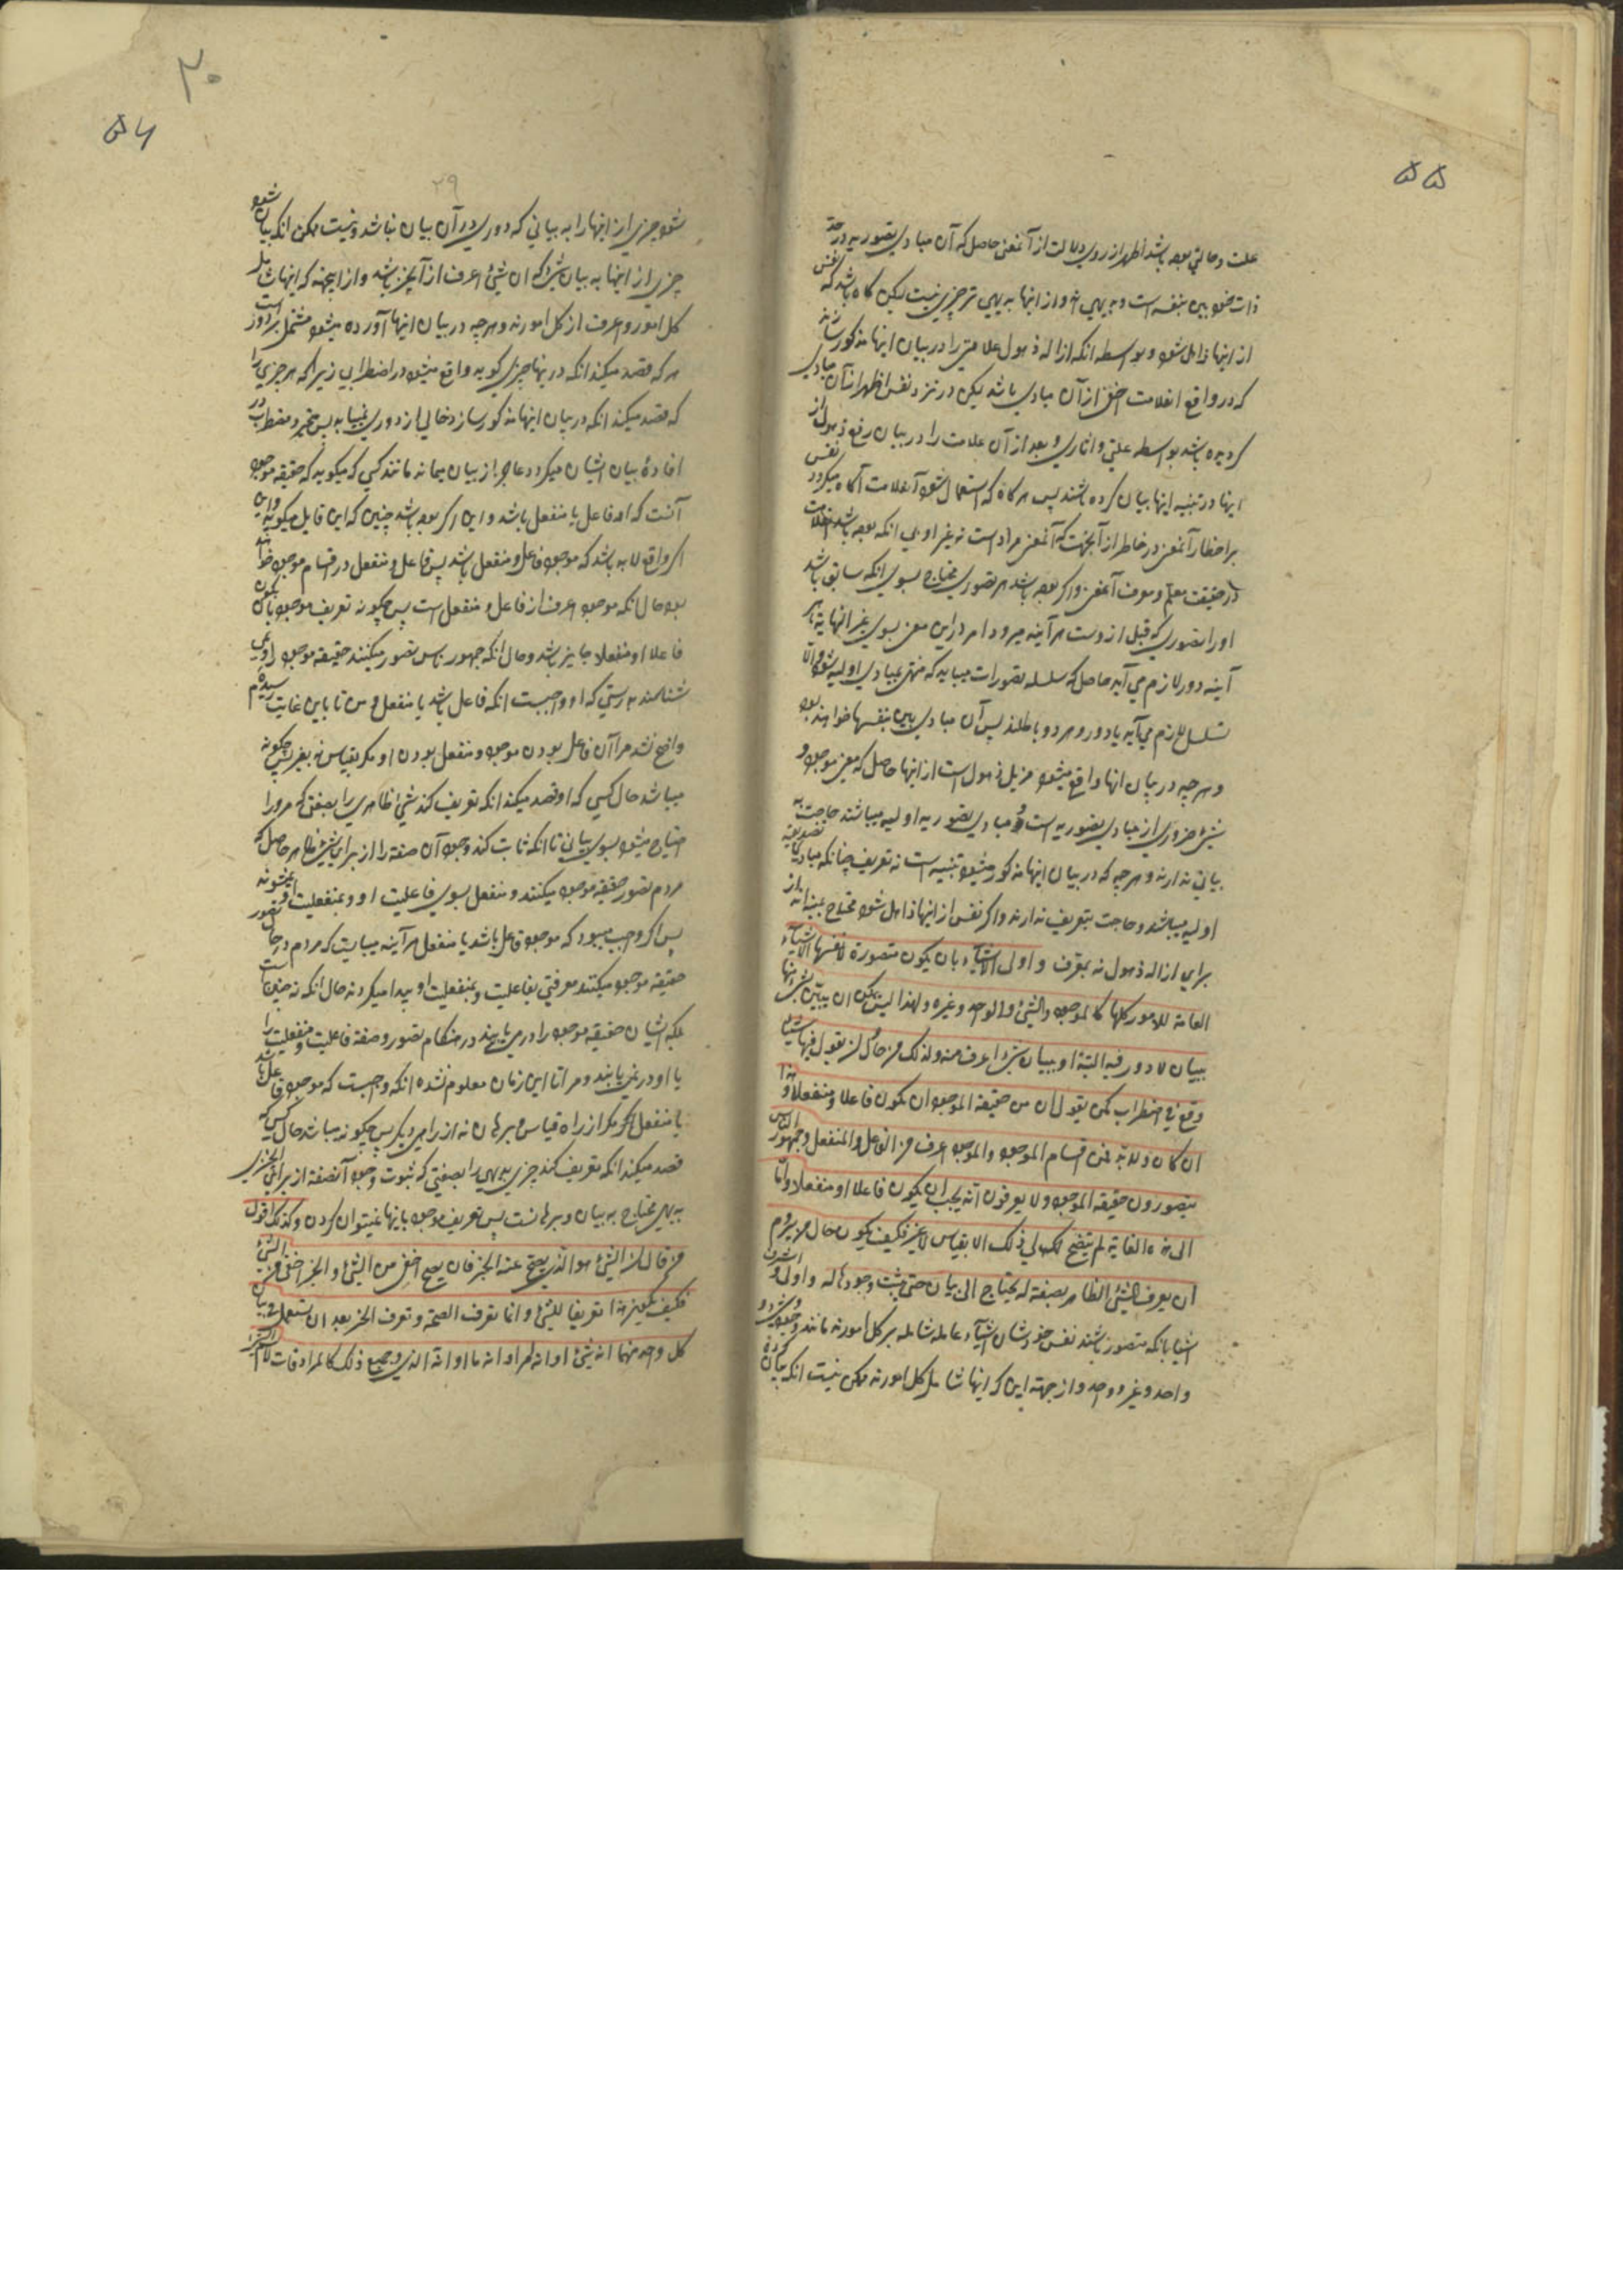 ۵۵
علت و حالتی بوده باشد اظهر از روی دلالت از آنمعنی حاصل که آن مبادی تصوریه در حد
ذات خود بین بنفسه است و بدیهی اند و از اینها بدیهی تر چیزی نیست لیکن گاه باشد که نفس
از اینها ذاهل شود و بواسطه انکه ازاله ذهول علامتی را در بیان اینها مذکور سازند
که در واقع انعلامت اخفی از آن مبادی باشد لیکن در نزد نفس اظهر از آن مبادی
گردیده باشد بواسطه علتی و اثاری و بعد از آن علامت را در بیان رفع ذهول از
اینها و در تنبیه اینها بیان کرده باشند پس هرگاه که استعمال شود آنعلامت آگاه میگردد نفس
بر اخطار آنمعنی در خاطر از آنجهت که آنمعنی مراد است نه غیر او بی انکه بوده باشد انعلامت
در حقیقت معلم و معرف آنمعنی و اگر بوده باشد هر تصوری محتاج بسوی انکه سابق باشد
او را تصوری که قبل ازوست هر آینه میرود امر در این معنی بسوی غیر النهایة یا هر
آینه دور لازم می آید حاصل که سلسله تصورات میباید که منتهی بمبادی اولیه شود و الا
تسلسل لازم می آید یا دور و هر دو باطلند پس آن مبادی بین بنفسها خواهند بود
و هر چه در بیان انها واقع میشود مزیل ذهول است از اینها حاصل که معنی موجود و
شیئ ضروری از مبادی تصوریه است و مبادی تصوریه اولیه میباشند حاجت به
بیانی ندارند و هر چه که در بیان اینها مذکور میشود تنبیه است نه تعریف چنانکه مبادی تصدیقیه که
اولیه میباشند و حاجت بتعریف ندارند و اگر نفس از اینها ذاهل شود محتاج بمنبه اند از
برای ازاله ذهول نه بمعرف و اولی الاشیآء بان یکون متصورة لانفسها الاشیآء
العامة للامور کلها کالموجود والشیئ والواحد وغیره ولهذا لیس یمکن ان یبین شئ منها
ببیان لا دور فیه البتة او ببیان شئ اعرف منه ولذلک من حاول ان یقول فیها شیئا
وقع فی اضطراب کمن یقول ان من حقیقة الموجود ان یکون فاعلا او منفعلا و هذا
ان کان ولابد فمن اقسام الموجود والموجود اعرف من الفاعل والمنفعل وجمهور الناس
یتصورون حقیقة الموجود ولا یعرفون انه یجب ان یکون فاعلا او منفعلا وانا
الی هذه الغایة لم یتضح لی ذلک الا بقیاس لا غیر فکیف یکون حال من یروم
ان یعرف الشیئ الظاهر بصفة له یحتاج الی بیان حتی یثبت وجودها له و اولی و اشرف
اشیا بانکه متصور باشند نفس خودشان اشیآء عامله شامله بر کل امورند مانند وجود و شیئ و
واحد و غیره واحد و از جهة این که اینها شامل کل امورند ممکن نیست انکه بیان کرده
۳۰
۵۶
۲۹
شود چیزی از اینها را به بیانی که دوری در آن بیان نباشد و نیست ممکن انکه بیان شود
چیزی از اینها به بیان شئ که ان شیئ اعرف از آنچیز باشد و از اینجهة که اینها شامل
کل امور و اعرف از کل امورند و هر چه در بیان اینها آورده میشود مشتمل بر دور است
هر که قصد میکند انکه در بنها چیزی گوید واقع میشود در اضطرابی زیرا که هر چیزی را
که قصد میکند انکه در بیان اینها مذکور سازد خالی از دوری نمییابد پس متحیر و مضطرب در
افاده بیان ایشان میگردد عاجز از بیان میماند مانند کسی که میگوید که حقیقة موجود
آنست که او فاعل یا منفعل باشد و این اگر بوده باشد چنین که این قایل میگوید و این
اگر واقع لابد باشد که موجود فاعل و منفعل باشد پس فاعل و منفعل در اقسام موجود خواهد
بود حال انکه موجود اعرف از فاعل و منفعل است پس چگونه تعریف موجود بان یکون
فاعلا او منفعلا جایز باشد و حال انکه جمهور ناس تصور میکنند حقیقة موجود را و نمی
شناسند به رستی که او واجبست انکه فاعل باشد یا منفعل و من تا باین غایت رسیده ام
واضح نشد مرا آن فاعل بودن موجود و منفعل بودن او مگر بقیاس نه بغیر پس چگونه
میباشد حال کسی که او قصد میکند انکه تعریف کند شیئ ظاهری را بصفتی که مر او را
احتیاج میشود بسوی بیانی تا انکه ثابت کند وجود آن صفة را از برای شیئ ظاهر حاصل که
مردم تصور حقیقة موجود میکنند و منفعل بسوی فاعلیت او و بمنفعلیت او نمیشوند
پس اگر واجب میبود که موجود فاعل باشد یا منفعل هر آینه میبایست که مردم در حال تصور
حقیقة موجود میکنند معرفتی بفاعلیت و بمنفعلیت او پیدا میکردند حال انکه نه چنین است
بلکه ایشان حقیقة موجود را در می یابند در هنگام تصور و صفة فاعلیت و منفعلیت را
با او در نمی یابند و مرا تا این زمان معلوم نشده انکه واجبست که موجود فاعل باشد
یا منفعل مگر از راه قیاس و برهان نه از راهی دیگر پس چگونه میباشد حال کسی که
قصد میکند انکه تعریف کند چیزی بدیهی را بصفتی که ثبوت وجود آنصفة از برای انچیزی
بدیهی محتاج به بیان و برهانست پس تعریف موجود باینها نمیتوان کردن وکذلک قول
من قال ان الشیئ هو الذی یصح عنه الخبر فان یصح اخفی من الشیئ و الخبر اخفی من الشیئ
فکیف یکون هذا تعریفا للشیئ وانما تعرف الصحة و تعرف الخبر بعد ان یستعمل فی بیان
کل واحد منهما انه شیئ او انه امر او انه ما او انه الذی وجمیع ذلک کالمرادفات لاسم الشیئ